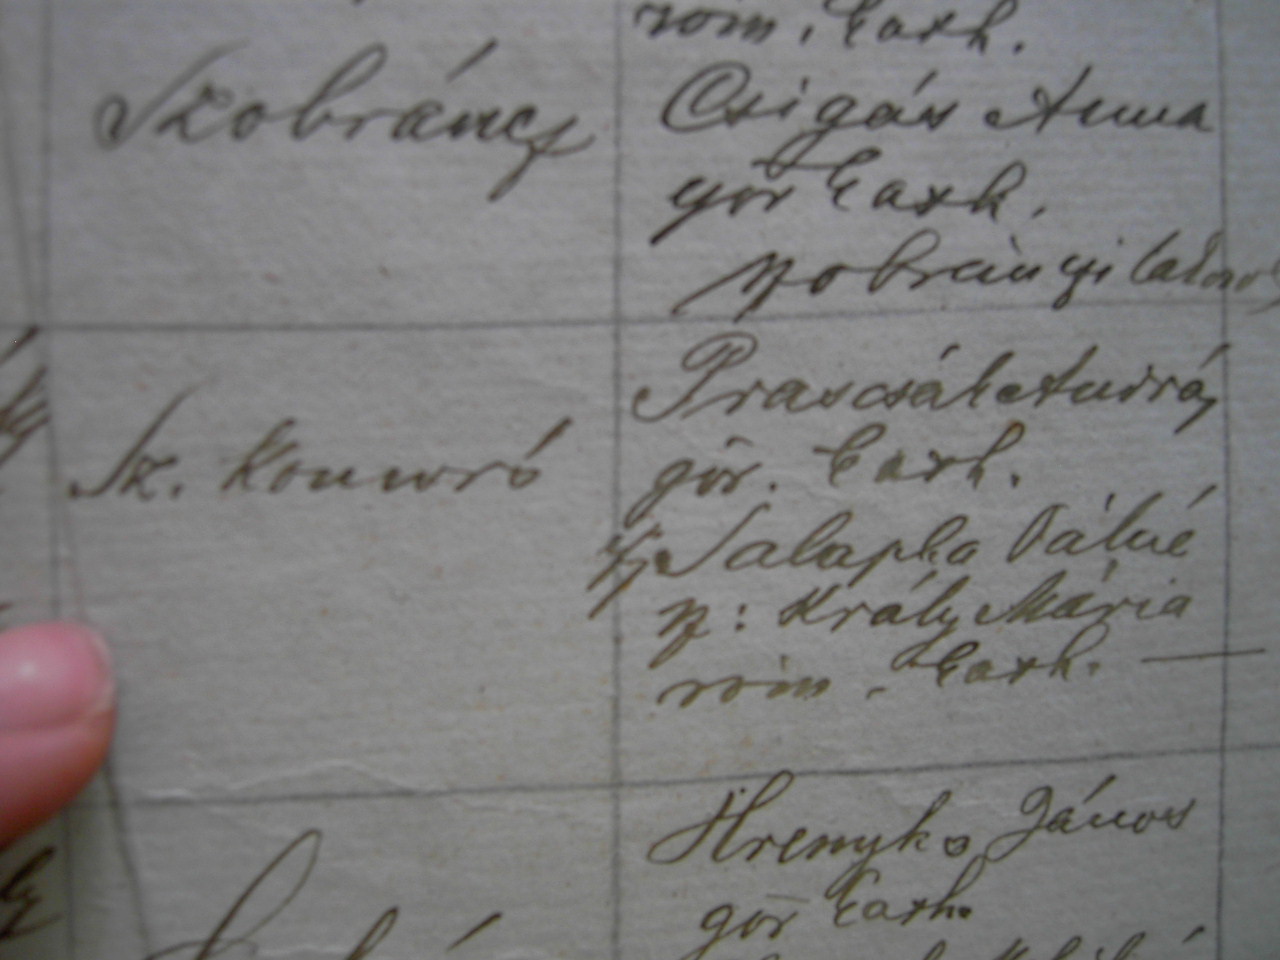 róm. kath.
Szobráncz
Csigás Anna
gör kath.
szobránczi lakos
Sz. Komoró
Prascsák András
gör. kath.
ifj. Salapka Pálné
sz: Király Mária
róm. kath. —
Hrenyko János
gör kath.